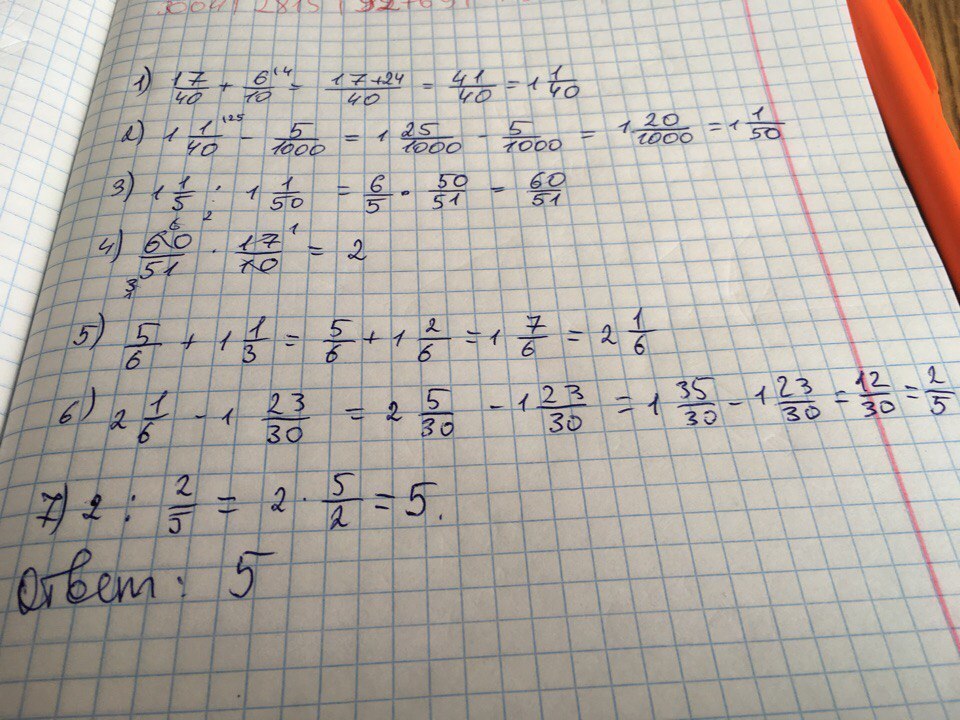 1) 17/40 + 6/10 ⁽⁴ = 17+24/40 = 41/40 = 1 1/40
2) 1 1/40 ⁽²⁵ - 5/1000 = 1 25/1000 - 5/1000 = 1 20/1000 = 1 1/50
3) 1 1/5 : 1 1/50 = 6/5 · 50/51 = 60/51
4) 60/51 · 17/10 = 2
5) 5/6 + 1 1/3 = 5/6 + 1 2/6 = 1 7/6 = 2 1/6
6) 2 1/6 - 1 23/30 = 2 5/30 - 1 23/30 = 1 35/30 - 1 23/30 = 12/30 = 2/5
7) 2 : 2/5 = 2 · 5/2 = 5.
Ответ: 5